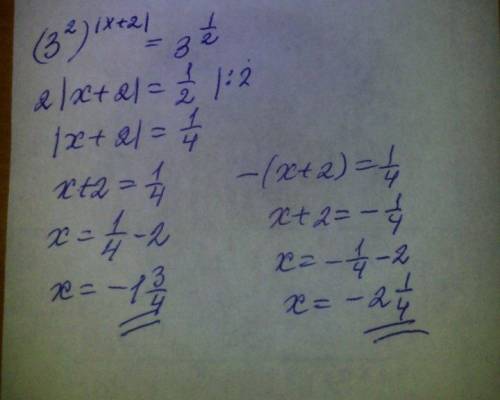 (3²)^|x+2| = 3^(1/2)
2|x+2| = 1/2 |:2
|x+2| = 1/4
x+2 = 1/4
x = 1/4 - 2
x = -1 3/4
-(x+2) = 1/4
x+2 = -1/4
x = -1/4 - 2
x = -2 1/4